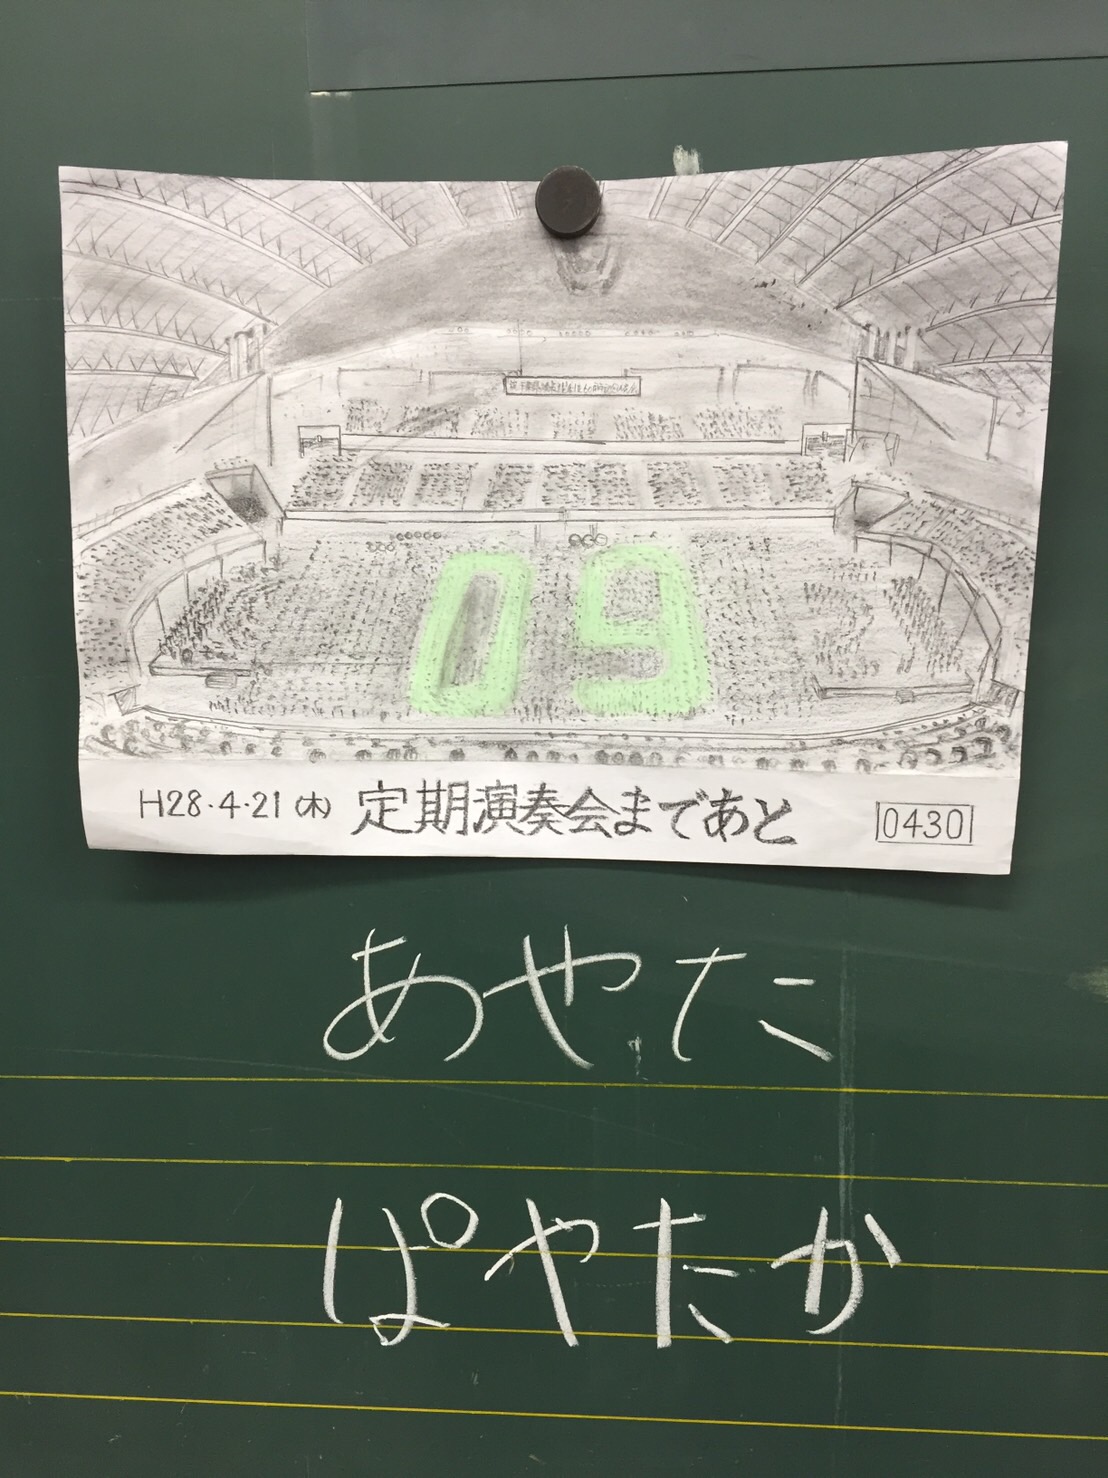 09
H28・4・21(木) 定期演奏会まであと 0430
あやた
ぱやたか